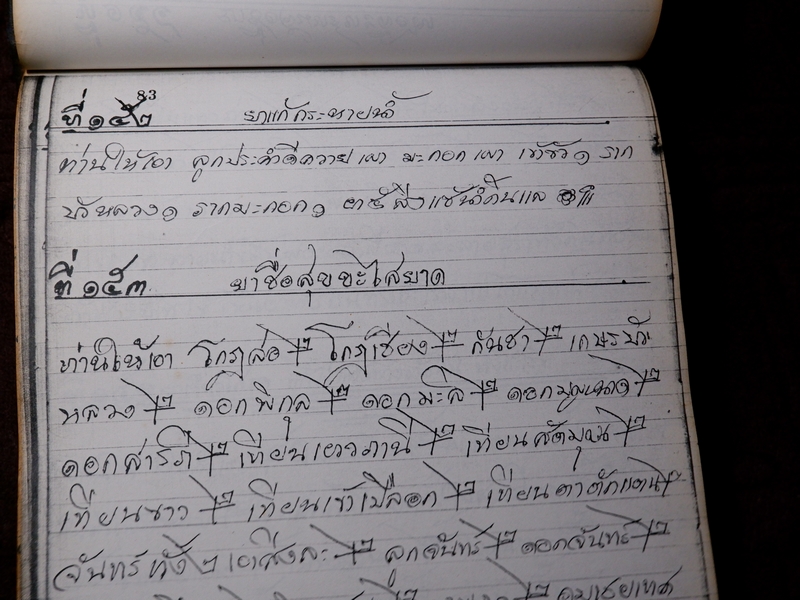 83
ที่ ๑๕๒ ยาแก้กระหายน้ำ
ท่านให้เอา ลูกประคำดีควายเผา มะกอกเผา ราก
บัวหลวง๑ รากมะกอก๑
ที่ ๑๕๓ ยาชื่อสุขขะไสยาด
ท่านให้เอา โกฎสอ ๒ โกฎเชียง ๒ กันชา ๒ เกษรบัว
หลวง ๒ ดอกพิกุล ๒ ดอกมะลิ ๒ ดอกบุญนาค ๒
ดอกสารภี ๒ เทียนเยาวภานี ๒ เทียนสัตบุษ ๒
เทียนขาว ๒ เทียนเข้าเปลือก ๒ เทียนตาตักแตน
จันทร์ทั้ง ๒ เอาสิ่งละ ๒ ลูกจันทร์ ๒ ดอกจันทร์ ๒